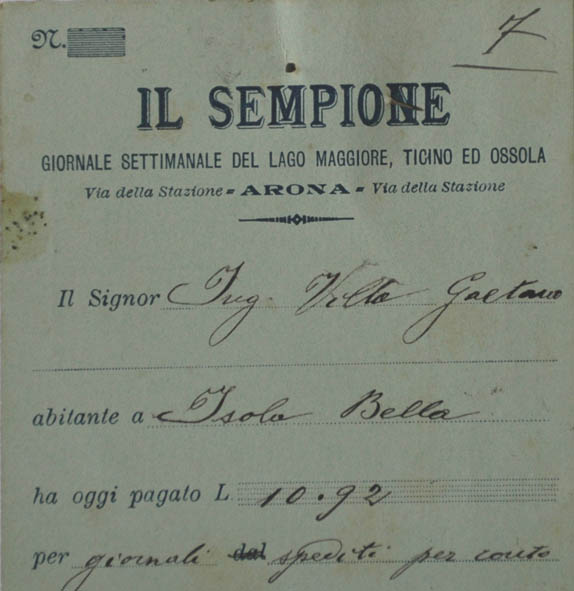 N. 7
IL SEMPIONE
GIORNALE SETTIMANALE DEL LAGO MAGGIORE, TICINO ED OSSOLA
Via della Stazione = ARONA = Via della Stazione
Il Signor Ing. Volta Gaetano
abitante a Isola Bella
ha oggi pagato L. 10.92
per giornali dal spediti per conto